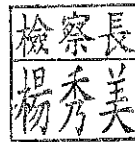 檢察長
楊秀美